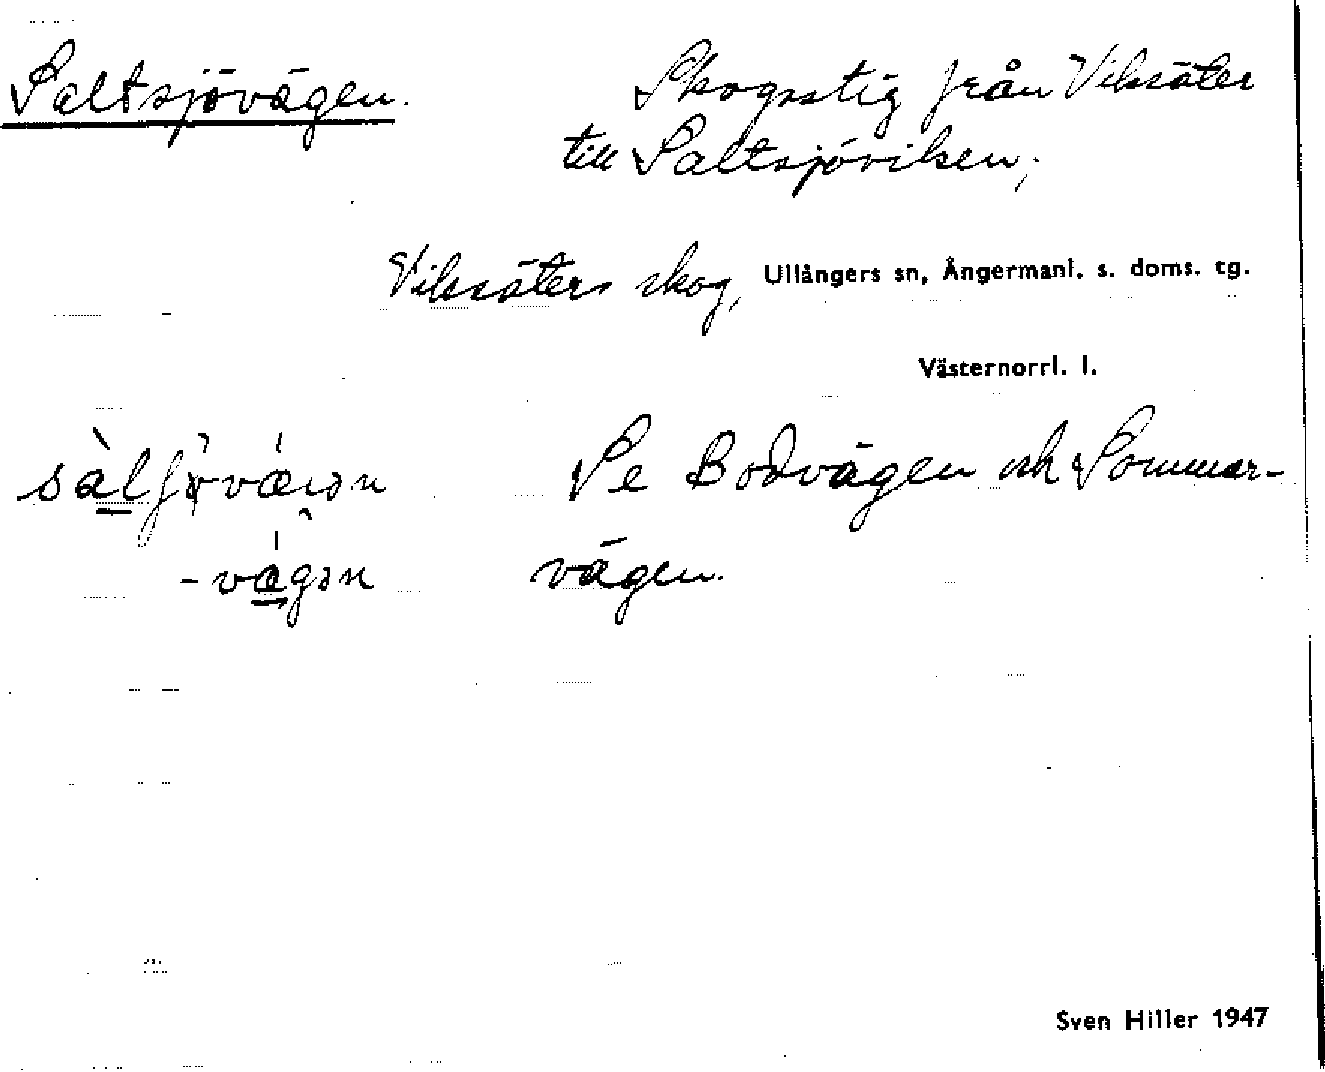 Saltsjövägen.
Skogsstig från Vilsäter
till Saltsjöviken;
Vilsäters skog, Ullångers sn, Ångermanl. s. doms. tg.
Västernorrl. l.
Se Bodvägen och Sommar-
-vägən
vägen.
Sven Hiller 1947